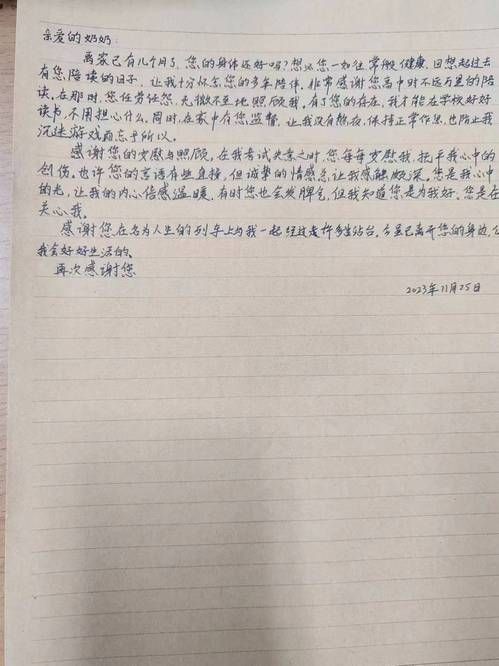 亲爱的奶奶:
离家已有几个月了,您的身体还好吗?想必您一如往常般健康。回想起过去
有您陪读的日子,让我十分怀念您的多年陪伴。非常感谢您高中时不远万里的陪
读。在那时,您任劳任怨,无微不至地照顾我。有了您的存在,我才能在学校好好
读书,不用担心什么。同时,在家中有您监督,让我没有熬夜,保持正常作息,也防止我
沉迷游戏而忘乎所以。
感谢您的安慰与照顾,在我考试失意之时,您每每安慰我,抚平我心中的
创伤。也许您的言语有些直接,但诚挚的情感总让我感触颇深。您是我心中
的光,让我的内心倍感温暖,有时您也会发脾气,但我知道您是为我好。您是在
关心我。
感谢您在名为人生的列车上与我一起经过走许多站台,今虽已离开您的身边,
我会好好生活的。
再次感谢您
2023年11月25日